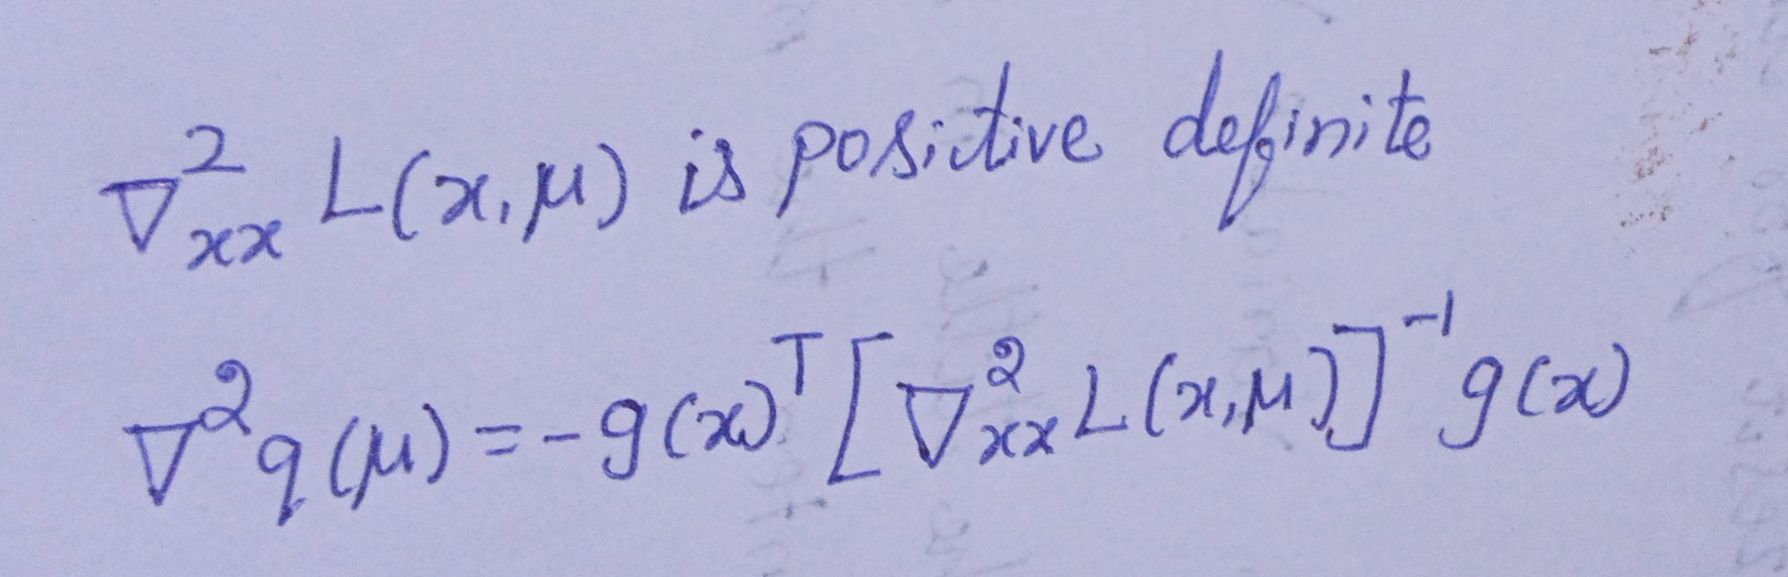 ∇²ₓₓ L(x, μ) is positive definite
∇² q(μ) = -g(x)ᵀ [∇²ₓₓ L(x, μ)]⁻¹ g(x)